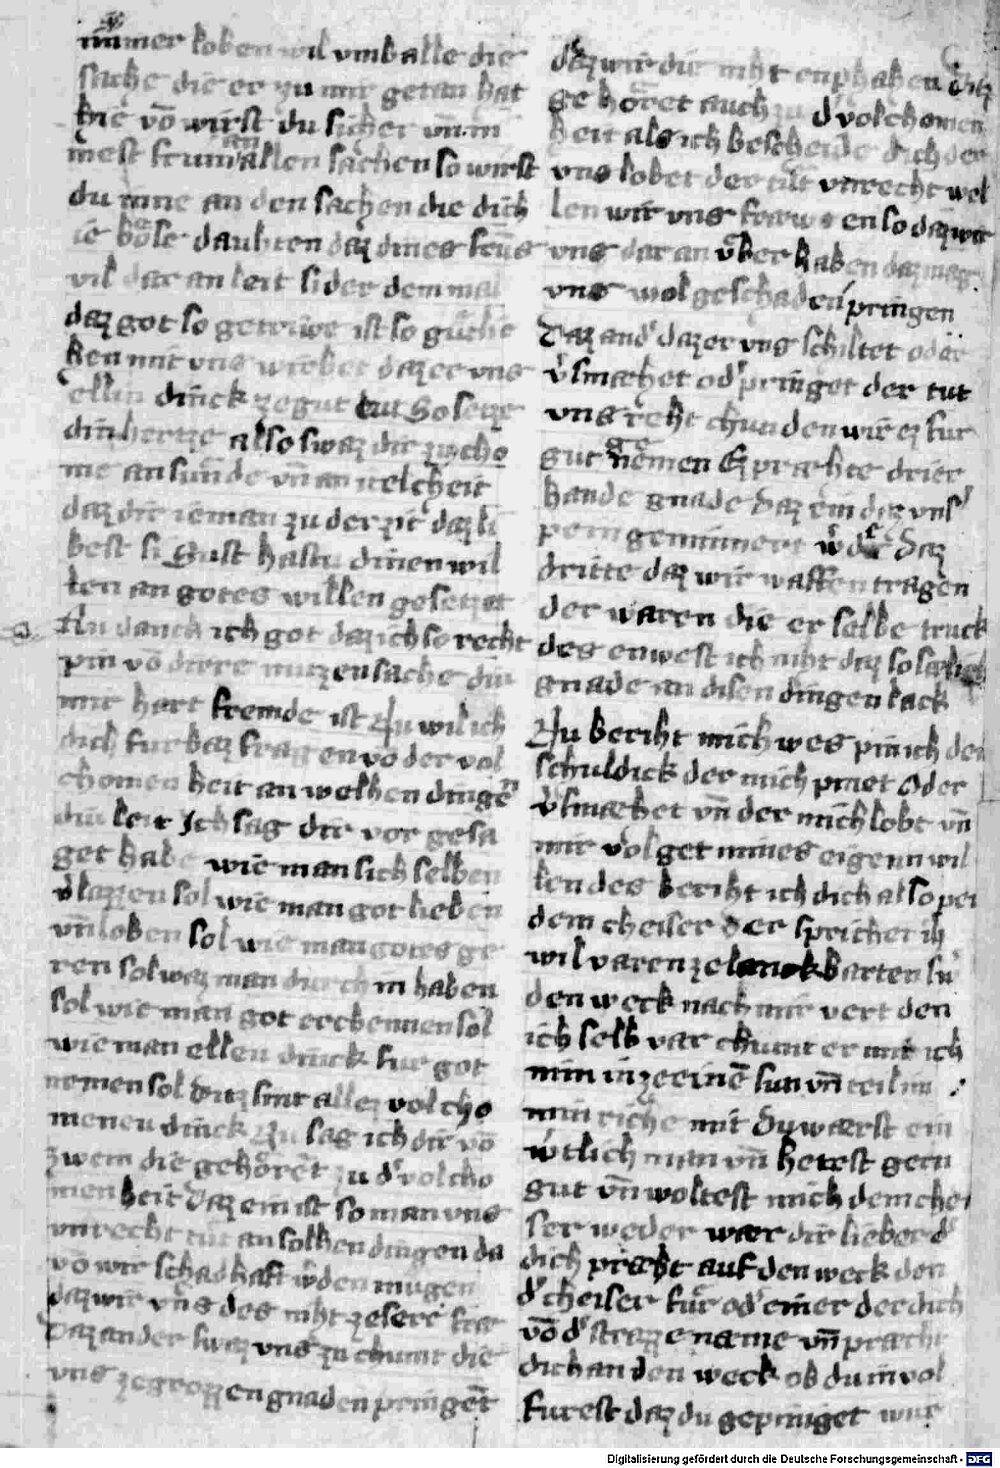 nimmer loben wil vmb alle die
sache die er zu mir getan hat
hie vō wirst du sicher vn̄ in
mest frum an allen sachen so wirst
du inne an den sachen die dich
ie böse dauhten daz dines frūs
vil dar an leit sider dem mal
daz got so getriwe ist so gütlic
ken mit vns wirbet daz er vns
ellin dinck ze gut tut So setze
din hertze also swaz dir zu cho
me an sunde vn̄ an itelcheit
daz dir ieman zu der zit daz li
best si Sust hastu dinen wil
len an gotes willen gesetzet
Nu danck ich got daz ich so recht
pin vō dirre nutzen sache diu
mir hart fremde ist Nu wil ich
dich furbaz fragen vō der vol
chomen heit an welhen dingē
diu leit Ich sag dir vor gesa
get habe wie man sich selben
v̓lazzen sol wie man got lieben
vn̄ loben sol wie man gotes ge
ren sol waz man durch in haben
sol wie man got erchennen sol
wie man ellen dinck fur got
nemen sol Ditz sint allez volcho
meneu dinck Nu sag ich dir vō
zwein die gehörēt zu d̓ volcho
menheit Daz ein ist so man vns
vnrecht tut an solhen dingen da
vō wir schadhaft w̓den mugen
daz wir vns des niht ze sere
Daz ander swaz vns zu chumt die
vns ze grozzen gnaden pringēt
daz wir die niht enphahen Ditz
gehöret auch zu d̓ volchomen
heit als ich bescheide dich der
vns lobet der tut vnrecht wel
len wir vns frawen so daz wir
vns dar an v̓ber haben daz mag
vns wol geschaden pringen
Daz and̓ daz er vns schiltet oder
v̓smæhet od̓ pringet der tut
vns reht chunden wir ez fur
gut ge nemen Ez præhte drier
hande gnade Daz ein daz vns̓
pein geminnert w̓de Daz
dritte daz wir waffen tragen
der waren die er selbe truck
des enwest ich niht daz so sælic
gnade an disen dingen lack
Nu beriht mich wes pin ich dem
schuldick der mich piniet Oder
v̓smæhet vn̄ der mich lobt vn̄
mir volget mines eigenn wil
len des beriht ich dich also pei
dem cheiser der sprichet ich
wil varen ze lanckbarten sw̓
den weck nach mir vert den
ich selb var chumt er mit ich
nim in ze einē sun vn̄ teil im
min riche mit Du wærst ein
w̓tlich man vn̄ hetest gern
gut vn̄ woltest nach dem chei
ser weder wær dir lieber d̓
dich præht auf den weck den
d̓ cheiser für od̓ einer der dich
vō d̓ strazze næme vn̄ præcht
dich an den weck ob du in vol
furest daz du gepiniget wur